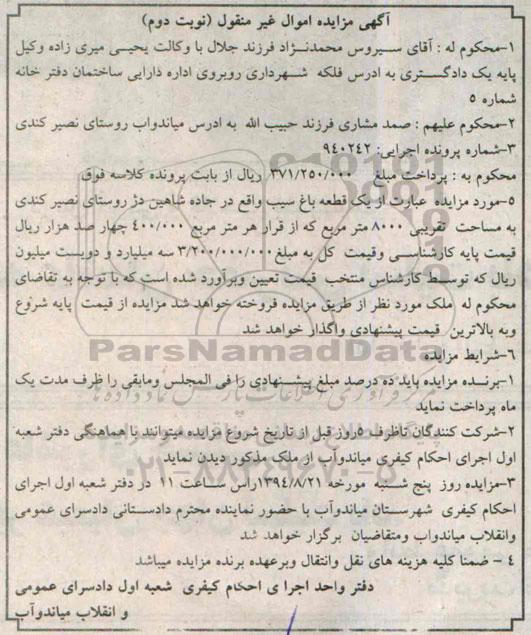 آگهی مزایده اموال غیر منقول (نوبت دوم)
۱-محکوم له : آقای سیروس محمدنژاد فرزند جلال با وکالت یحیی میری زاده وکیل
پایه یک دادگستری به ادرس فلکه شهرداری روبروی اداره دارایی ساختمان دفتر خانه
شماره ۵
۲-محکوم علیهم : صمد مشاری فرزند حبیب الله به ادرس میاندواب روستای نصیر کندی
۳-شماره پرونده اجرایی: ۹۴۰۲۴۲
محکوم به : پرداخت مبلغ ۳۷۱/۲۵۰/۰۰۰ ریال از بابت پرونده کلاسه فوق
۵-مورد مزایده عبارت از یک قطعه باغ سیب واقع در جاده شاهین دژ روستای نصیر کندی
به مساحت تقریبی ۸۰۰۰ متر مربع که از قرار هر متر مربع ۴۰۰/۰۰۰ چهار صد هزار ریال
قیمت پایه کارشناسی وقیمت کل به مبلغ ۳/۲۰۰/۰۰۰/۰۰۰ سه میلیارد و دویست میلیون
ریال که توسط کارشناس منتخب قیمت تعیین وبرآورد شده است که با توجه به تقاضای
محکوم له ملک مورد نظر از طریق مزایده فروخته خواهد شد مزایده از قیمت پایه شروع
وبه بالاترین قیمت پیشنهادی واگذار خواهد شد
۶-شرایط مزایده
ParsNamadData
۱-برنده مزایده باید ده درصد مبلغ پیشنهادی را فی المجلس ومابقی را ظرف مدت یک
ماه پرداخت نماید
۲-شرکت کنندگان تاظرف ۵روز قبل از تاریخ شروع مزایده میتوانند با هماهنگی دفتر شعبه
اول اجرای احکام کیفری میاندوآب از ملک مذکور دیدن نماید
۰۲۱-۸۸۳۴۹۶۷۰-۵
۳-مزایده روز پنج شنبه مورخه ۱۳۹۴/۸/۲۱راس ساعت ۱۱ در دفتر شعبه اول اجرای
احکام کیفری شهرستان میاندوآب با حضور نماینده محترم دادستانی دادسرای عمومی
وانقلاب میاندواب ومتقاضیان برگزار خواهد شد
۴ - ضمنا کلیه هزینه های نقل وانتقال وبرعهده برنده مزایده میباشد
دفتر واحد اجرا ی احکام کیفری شعبه اول دادسرای عمومی
و انقلاب میاندوآب